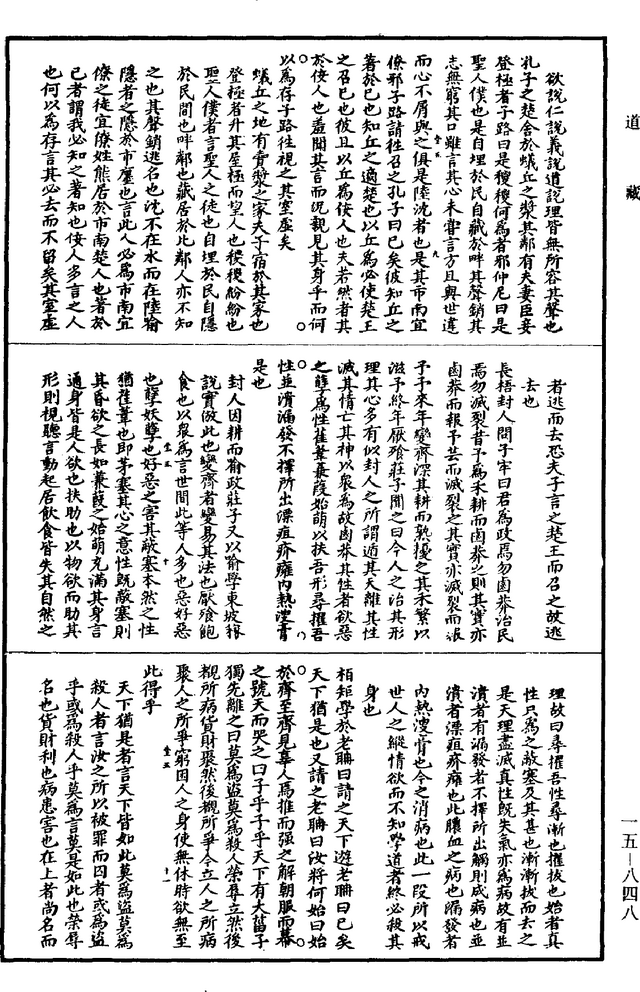 道藏
欲說仁說義說道說理皆無所容其聲也
孔子之楚舍於蟻丘之漿其鄰有夫妻臣妾
登極者子路曰是稯稯何為者邪仲尼曰是
聖人僕也是自埋於民自藏於畔其聲銷其
志無窮其口雖言其心未嘗言方且與世違
而心不屑與之俱是陸沈者也是其市南宜
僚邪子路請往召之孔子曰已矣彼知丘之
著於已也知丘之適楚也以丘為必使楚王
之召已也彼且以丘為佞人也夫若然者其
於佞人也羞聞其言而況親見其身乎而何
以為存子路往視之其室虛矣
蟻丘之地有賣漿之家夫子宿於其家也
登極者升其屋極而望人也稯稯紛紛也
聖人僕者言聖人之徒也自埋於民自隱
於民間也畔鄰也藏居於比鄰人亦不知
之也其聲銷逃名也沈不在水而在陸喻
隱者之隱於市廛也言此人必為市南宜
僚之徒宜僚姓熊居於市南楚人也著於
已者謂我必知之著知也佞人多言之人
也何以為存言其必去而不留矣其室虛
者逃而去恐夫子言之楚王而召之故逃
去也
長梧封人問子牢曰君為政焉勿鹵莽治民
焉勿滅裂昔予為禾耕而鹵莽之則其實亦
鹵莽而報予芸而滅裂之其實亦滅裂而報
予予來年變齊深其耕而熟擾之其禾繁以
滋予終年厭飱莊子聞之曰今人之治其形
理其心多有似封人之所謂遁其天離其性
滅其情亡其神以衆為故鹵莽其性者欲惡
之孽為性萑葦蒹葭始萌以扶吾形尋擢吾
性並潰漏發不擇所出漂疽疥癕內熱溲膏
是也
封人因耕而喻政莊子又以喻學東坡稼
說實倣此也變齊者變易其法也厭飱飽
食也以衆為言世間此等人多也惡好惡
也孽妖孽也好惡之害其蔽塞本然之性
猶萑葦也即茅塞其心之意性既蔽塞則
其昏欲之長如蒹葭之始萌充滿其身言
通身皆是人欲也扶助也以物欲而助其
形則視聽言動起居飲食皆失其自然之
理故曰尋擢吾性尋漸也擢拔也始者真
性只為之蔽塞及其甚也漸漸拔而去之
是天理盡滅真性既失氣亦為病故有並
潰者有漏發者不擇所出觸則成病也並
潰者漂疽疥癕也此膿血之病也漏發者
內熱溲膏也今之消病也此一段所以戒
世人之縱情欲而不知學道者終必殺其
身也
栢矩學於老聃曰請之天下遊老聃曰已矣
天下猶是也又請之老聃曰汝將何始曰始
於齊至齊見辜人焉推而强之解朝服而幕
之號天而哭之曰子乎子乎天下有大菑子
獨先離之曰莫為盜莫為殺人榮辱立然後
覩所病貨財聚然後覩所爭今立人之所病
聚人之所爭窮困人之身使無休時欲無至
此得乎
天下猶是者言天下皆如此莫為盜莫為
殺人者言汝之所以被罪而囚者或為盜
乎或為殺人乎莫為言莫是如此也榮辱
名也貨財利也病患害也在上者尚名而
一五—八四八